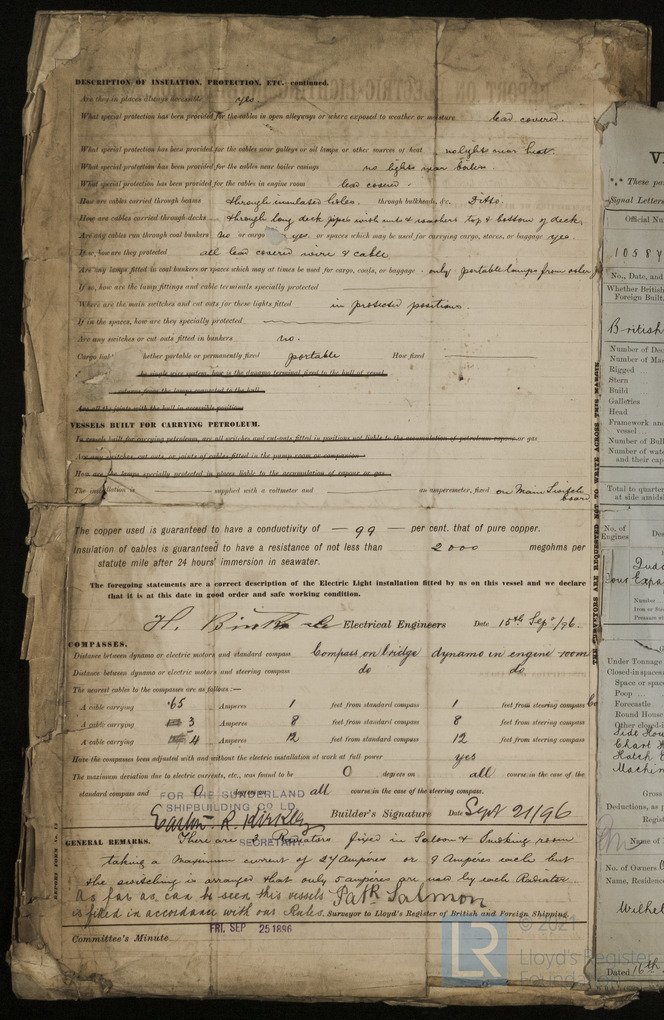 DESCRIPTION OF INSULATION, PROTECTION, ETC.—continued.
Are they in places always accessible yes
What special protection has been provided for the cables in open alleyways or where exposed to weather or moisture lead covered.
What special protection has been provided for the cables near galleys or oil lamps or other sources of heat no lights near heat.
What special protection has been provided for the cables near boiler casings no lights near boiler
What special protection has been provided for the cables in engine room lead covered.
How are cables carried through beams through insulated holes. through bulkheads, &c. Ditto.
How are cables carried through decks through long deck pipes with nuts & washers top & bottom of deck
Are any cables run through coal bunkers no or cargo yes. or spaces which may be used for carrying cargo, stores, or baggage yes.
If so, how are they protected all lead covered wire & cable
Are any lamps fitted in coal bunkers or spaces which may at times be used for cargo, coals, or baggage only portable lamps from
If so, how are the lamp fittings and cable terminals specially protected
Where are the main switches and cut outs for these lights fitted in protected positions.
If in the spaces, how are they specially protected
Are any switches or cut outs fitted in bunkers no.
Cargo hether portable or permanently fixed portable How fixed
single wire system, how is the dynamo terminal fixed to the hull of vessel
returns from the lamps connected to the hull
Are all the joints with the hull in accessible positions
VESSELS BUILT FOR CARRYING PETROLEUM.
In vessels built for carrying petroleum, are all switches and cut-outs fitted in positions not liable to the accumulation of petroleum vapour or gas
Are any switches, cut outs, or joints of cables fitted in the pump room or companion
How are the lamps specially protected in places liable to the accumulation of vapour or gas
The installation is supplied with a voltmeter and an amperemeter, fixed on Main Switch board
The copper used is guaranteed to have a conductivity of 99 per cent. that of pure copper.
Insulation of cables is guaranteed to have a resistance of not less than 2000 megohms per
statute mile after 24 hours' immersion in seawater.
The foregoing statements are a correct description of the Electric Light installation fitted by us on this vessel and we declare
that it is at this date in good order and safe working condition.
H. Electrical Engineers Date 15th Sepr/96.
COMPASSES.
Distance between dynamo or electric motors and standard compass Compass on bridge dynamo in engine room
Distance between dynamo or electric motors and steering compass do do.
The nearest cables to the compasses are as follows:—
A cable carrying .65 Amperes 1 feet from standard compass 1 feet from steering compass
A cable carrying 3 Amperes 8 feet from standard compass 8 feet from steering compass
A cable carrying 4 Amperes 12 feet from standard compass 12 feet from steering compass
Have the compasses been adjusted with and without the electric installation at work at full power yes
The maximum deviation due to electric currents, etc., was found to be 0 degrees on all course in the case of the
standard compass and 0 degrees on all course in the case of the steering compass.
FOR THE SUNDERLAND
SHIPBUILDING CO LD
R. Kirkley Builder's Signature Date Sept 21/96
SECRETARY.
GENERAL REMARKS. There are 3 Radiators fixed in Saloon & Smoking room
taking a Maximum current of 27 Amperes or 9 Amperes each but
the switching is arranged that only 5 amperes are used by each Radiator.
As far as can be seen this vessels Patk Salmon
is fitted in accordance with our Rules. Surveyor to Lloyd's Register of British and Foreign Shipping.
FRI. SEP 25 1896
Committee's Minute
THE SURVEYORS ARE REQUESTED NOT TO WRITE ACROSS THIS MARGIN.
These pa
Signal Letters
Official Nu
1058
No., Date, and
Whether British
Foreign Built
British
Number of Dec
Number of Ma
Rigged
Stern
Build
Galleries
Head
Framework and
vessel
Number of Bul
Number of wate
and their cap
Total to quarte
at side amidsh
No. of
Engines
Des
Under Tonnage
Closed-in spaces
Space or spac
Poop
Forecastle
Round House
Other closed-i
Side Hou
Chart H
Hatch
Machin
Gross
Deductions, as
Regist
Name of
No. of Owners
Name, Residence
Wilhel
Dated 16th
© 2021
LR
Lloyd's Register
Foundation